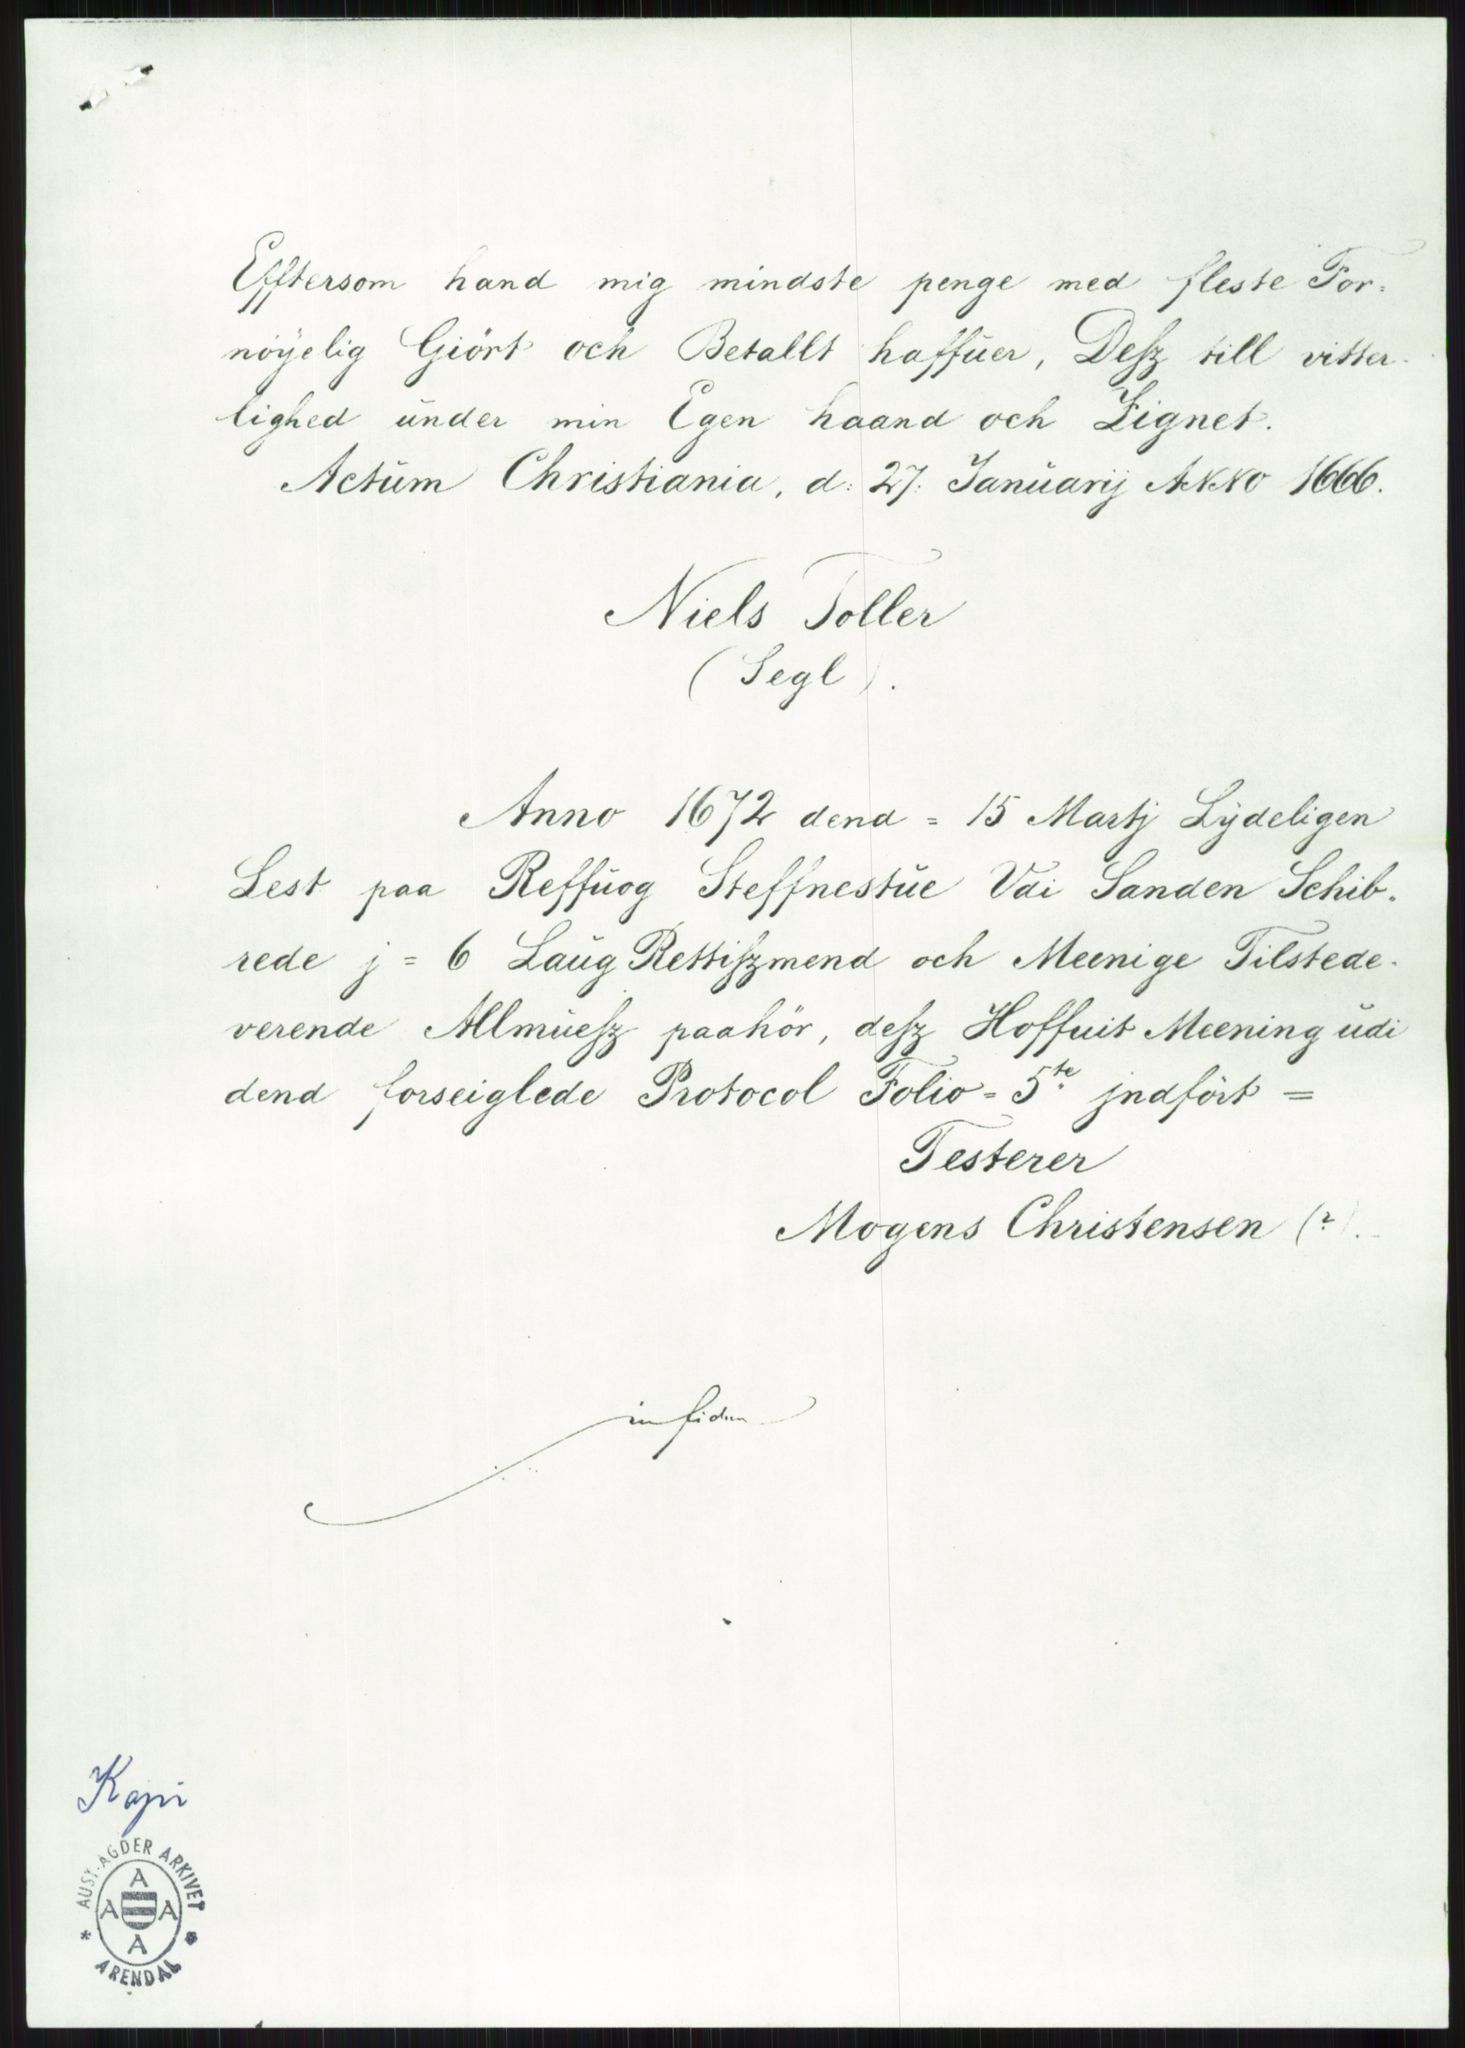 Efftersom hand mig mindste penge med fleste For-
nöÿelig Giört och Betallt haffŭer, Desz till vitter-
lighed ŭnder min Egen haand och Zignet.
Actŭm Christiania, d: 27. Janŭarij ANNO 1666.
Niels Toller
(Segl).
Anno 1672 dend = 15 Martj Lÿdeligen
Lest paa Reffŭog Steffnestŭe Vdi Sanden Schib-
rede j = 6 Laŭg Rettiszmend och Meenige Tilstede-
verende Allmŭesz paahör, desz Hoffuit Meening ŭdi
dend forseiglede Protocol Folio = 5te jndfört =
Testerer
Mogens Christensen (?).
in fidem
Kopi
AUST-AGDER ARKIVET
A
A A
A
* ARENDAL *